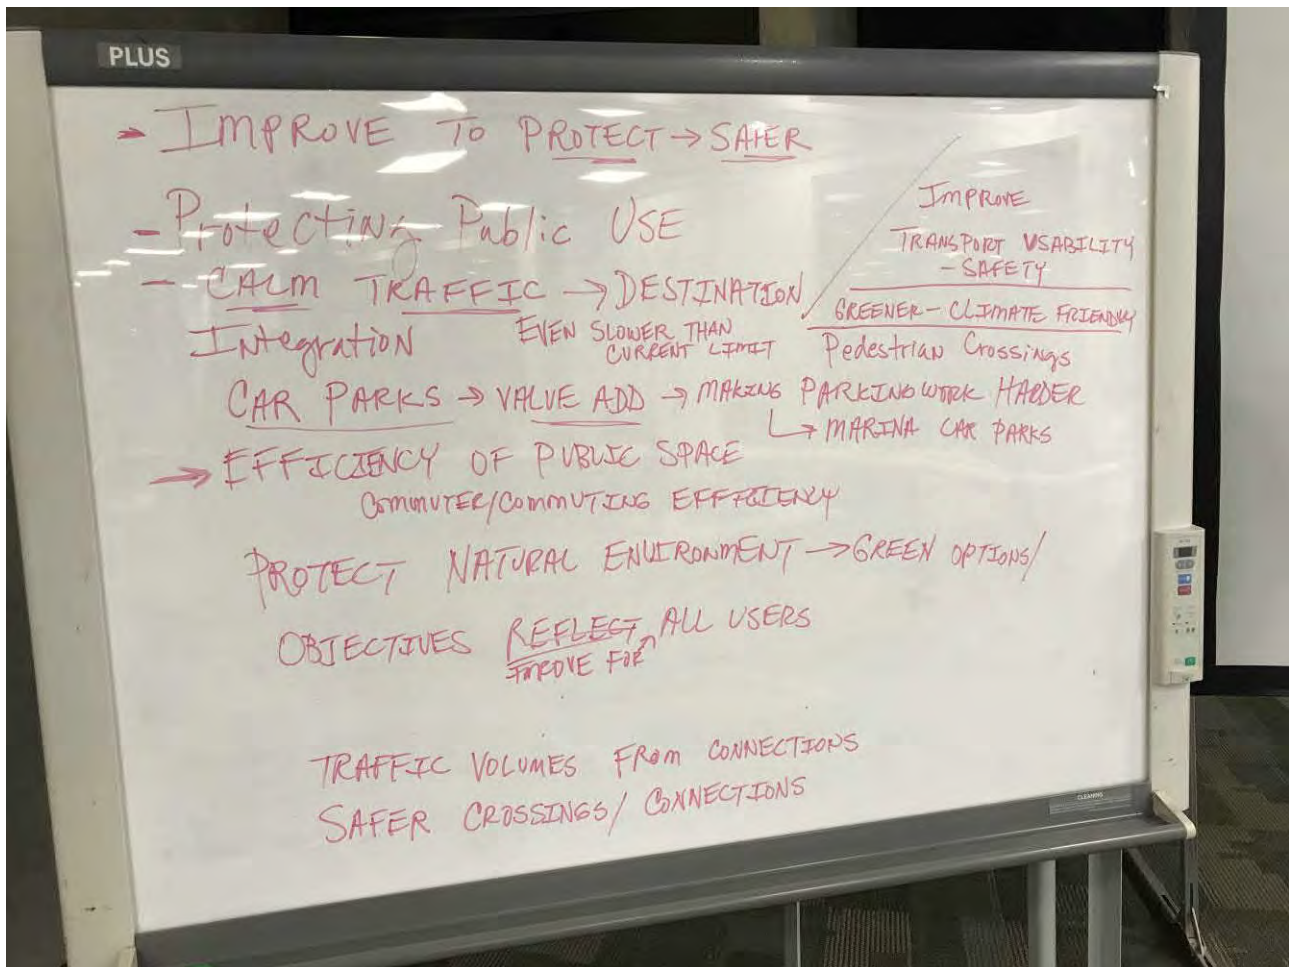 PLUS
➔ IMPROVE TO PROTECT → SAFER
- Protecting Public USE
- CALM TRAFFIC → DESTINATION
EVEN SLOWER THAN
CURRENT LIMIT
Integration
IMPROVE
TRANSPORT USABILITY
- SAFETY
GREENER - CLIMATE FRIENDLY
Pedestrian Crossings
CAR PARKS → VALUE ADD → MAKING PARKING WORK HARDER
↳ MARINA CAR PARKS
→ EFFICIENCY OF PUBLIC SPACE
COMMUTER/COMMUTING EFFICIENCY
PROTECT NATURAL ENVIRONMENT → GREEN OPTIONS/
OBJECTIVES REFLECT ALL USERS
IMPROVE FOR
TRAFFIC VOLUMES FROM CONNECTIONS
SAFER CROSSINGS/ CONNECTIONS
CLEANING